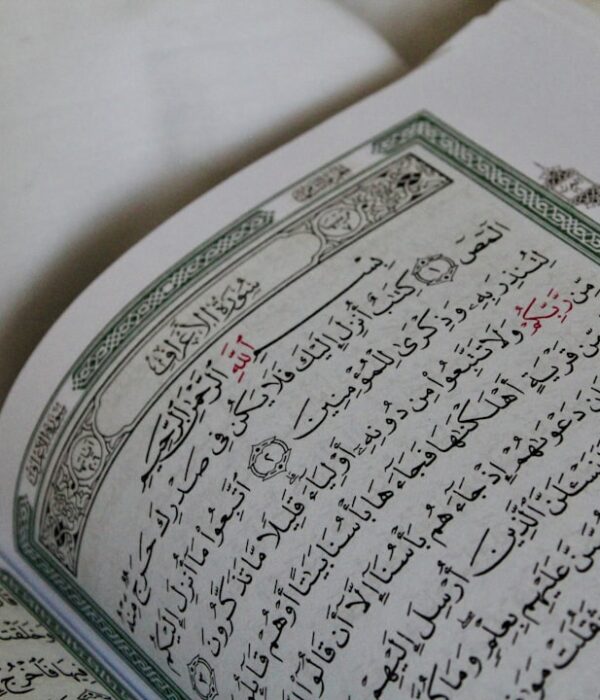 سُورَةُ الأَعْرَافِ
سُورَةُ الأَعْرَافِ
بِسْمِ ٱللَّهِ ٱلرَّحْمَٰنِ ٱلرَّحِيمِ
الٓمٓصٓ ١ كِتَٰبٌ أُنزِلَ إِلَيْكَ فَلَا يَكُن فِى صَدْرِكَ حَرَجٌ مِّنْهُ
لِتُنذِرَ بِهِۦ وَذِكْرَىٰ لِلْمُؤْمِنِينَ ٢ ٱتَّبِعُوا۟ مَآ أُنزِلَ إِلَيْكُم
مِّن رَّبِّكُمْ وَلَا تَتَّبِعُوا۟ مِن دُونِهِۦٓ أَوْلِيَآءَ قَلِيلًا مَّا تَذَكَّرُونَ ٣
مِّن قَرْيَةٍ أَهْلَكْنَٰهَا فَجَآءَهَا بَأْسُنَا بَيَٰتًا أَوْ هُمْ قَآئِلُ
دَعْوَىٰهُمْ إِذْ جَآءَهُم بَأْسُنَآ إِلَّآ أَن قَالُوٓا۟
ٱلَّذِينَ أُرْسِلَ إِلَيْهِمْ
عَلَيْهِم بِعِلْمٍ وَمَا كُنَّا
ثَقُلَتْ